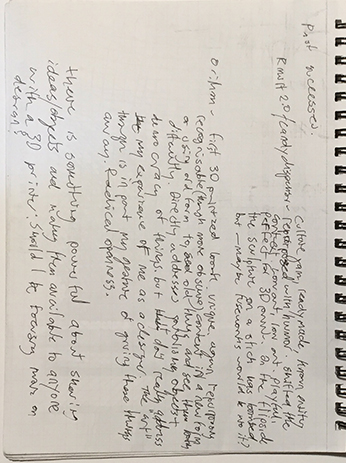 Past successes:
R Mutt 2.0 / candy dispenser - Culture jam, readymade, known entity
repurposed with humor. Shifted the
context. Low art, playful.
perfect for 3D print. On the flipside
the sculpture on a stick was
but - maybe would do it?
Orihon - first 3D printed book, unique again, repurposing
recognizable though more obscure content in a new form
or using old form to old things and see them both
differently. Directly addresses gatherings, objects +
democracy of things, but that does really address
the my experience of me as a designer. The "art"
though is in part my gesture of giving these things
away. Radical openness.
There is something powerful about sharing
ideas/objects and making them available to anyone
with a 3D printer. Should I be focusing more on
design?